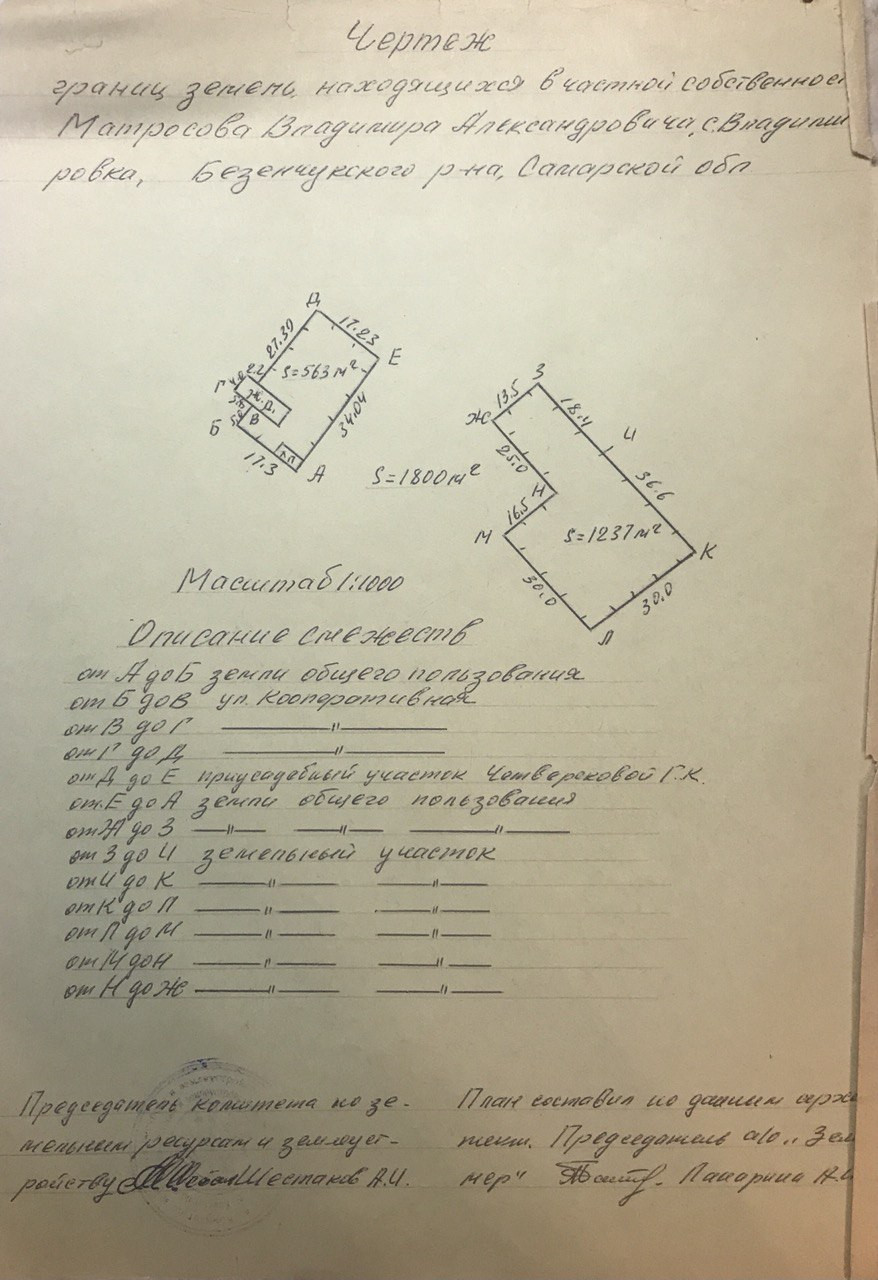 Чертеж
границ земель, находящихся в частной собственнос
Матросова Владимира Александровича, с. Владими
ровка, Безенчукского р-на, Самарской обл
Д
27.39
17.23
Е
S=563 м²
Г
Ж.Д.
34.04
Б
В
17.3
А
З
13.5
18.4
Ж
И
25.0
S=1800 м²
36.6
Н
16.5
М
S=1237 м²
К
30.0
30.0
Л
Масштаб 1:1000
Описание смежеств
от А до Б земли общего пользования
от Б до В ул. Кооперативная
от В до Г —〃—
от Г до Д —〃—
от Д до Е приусадебный участок Четверековой Г.К.
от Е до А земли общего пользования
от Ж до З —〃— —〃— —〃—
от З до И земельный участок
от И до К —〃— —〃—
от К до Л —〃— —〃—
от Л до М —〃— —〃—
от М до Н —〃— —〃—
от Н до Ж —〃— —〃—
Председатель комитета по зе-
мельным ресурсам и землеуст-
ройству Шестаков А.И.
План составил по данным архи
тект. Председатель а/о „Зем
мер" Лапарина Н.И